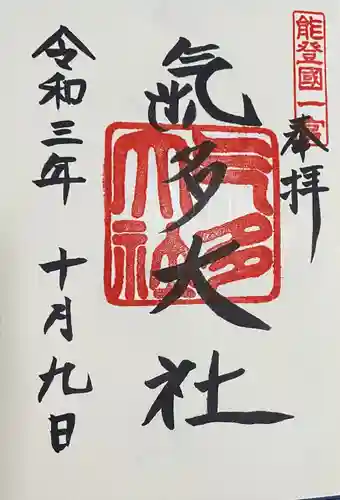 能登國一宮
奉拝
氣多大社
气多大社
令和三年 十月九日